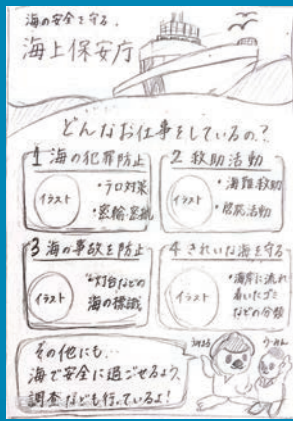 海の安全を守る、
海上保安庁
どんなお仕事をしているの?
1 海の犯罪防止
イラスト
・テロ対策
・密輸・密航
2 救助活動
イラスト
・海難救助
・防災活動
3 海の事故を防止
イラスト
・灯台などの
海の標識
4 きれいな海を守る
イラスト
・海岸に流れ
着いたゴミ
などの分類
その他にも…
海で安全に過ごせるよう、
調査なども行っているよ!
うみまる
うーみん